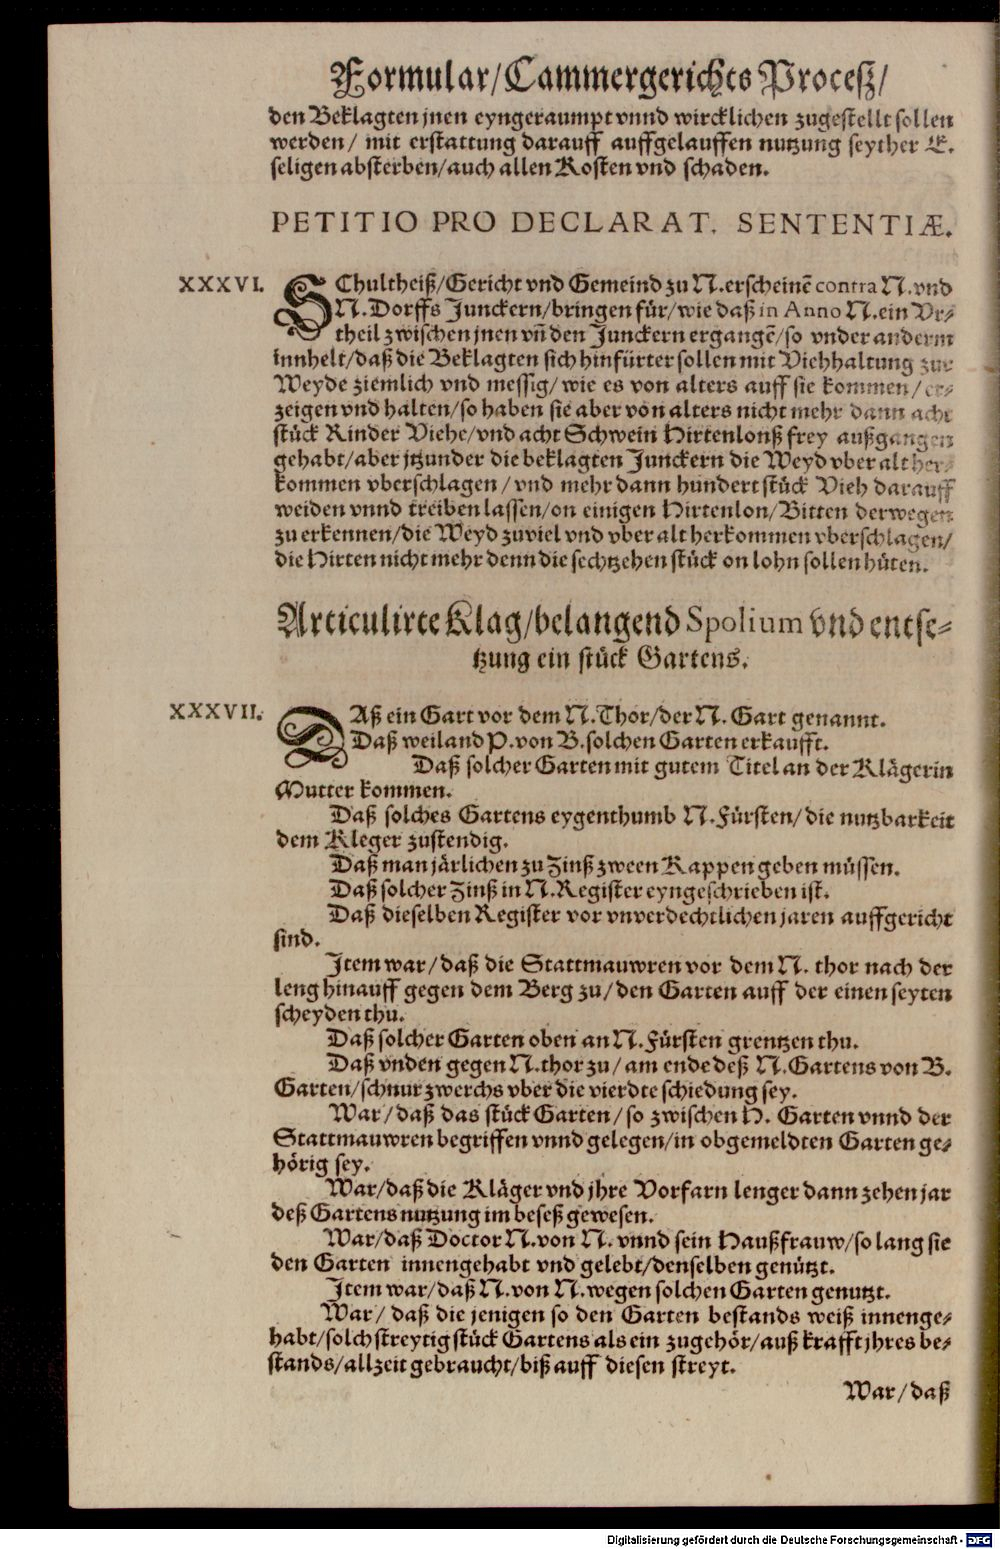 Formular/Cammergerichts Procesz/
den Beklagten jnen eyngeraumpt vnnd wircklichen zugestellt sollen
werden/ mit erstattung darauff auffgelauffen nutzung seyther E.
seligen absterben/auch allen Kosten vnd schaden.
PETITIO PRO DECLARAT. SENTENTIÆ.
XXXVI. SChultheiß/Gericht vnd Gemeind zu N.erscheinē contra N.vnd
N.Dorffs Junckern/bringen für/wie daß in Anno N.ein Vr-
theil zwischen jnen vñ den Junckern ergangē/so vnder anderm
innhelt/daß die Beklagten sich hinfürter sollen mit Viehhaltung zur
Weyde ziemlich vnd messig/wie es von alters auff sie kommen/er-
zeigen vnd halten/so haben sie aber von alters nicht mehr dann acht
stück Rinder Viehe/vnd acht Schwein Hirtenlonß frey außgangen
gehabt/aber jtzunder die beklagten Junckern die Weyd vber alt her-
kommen vberschlagen/vnd mehr dann hundert stück Vieh darauff
weiden vnnd treiben lassen/on einigen Hirtenlon/Bitten derwegen
zu erkennen/die Weyd zuviel vnd vber alt herkommen vberschlagen/
die Hirten nicht mehr denn die sechtzehen stück on lohn sollen hüten.
Articulirte Klag/belangend Spolium vnd entse-
tzung ein stück Gartens.
XXXVII. DAß ein Gart vor dem N.Thor/der N. Gart genannt.
Daß weiland P.von B.solchen Garten erkaufft.
Daß solcher Garten mit gutem Titel an der Klägerin
Mutter kommen.
Daß solches Gartens eygenthumb N.Fürsten/die nutzbarkeit
dem Kleger zustendig.
Daß man järlichen zu Zinß zween Kappen geben müssen.
Daß solcher Zinß in N.Register eyngeschrieben ist.
Daß dieselben Register vor vnverdechtlichen jaren auffgericht
sind.
Item war/daß die Stattmauwren vor dem N. thor nach der
leng hinauff gegen dem Berg zu/den Garten auff der einen seyten
scheyden thu.
Daß solcher Garten oben an N.Fürsten grentzen thu.
Daß vnden gegen N.thor zu/am ende deß N.Gartens von B.
Garten/schnur zwerchs vber die vierdte schiedung sey.
War/daß das stück Garten/so zwischen H. Garten vnnd der
Stattmauwren begriffen vnnd gelegen/in obgemeldten Garten ge-
hörig sey.
War/daß die Kläger vnd jhre Vorfarn lenger dann zehen jar
deß Gartens nutzung im beseß gewesen.
War/daß Doctor N.von N. vnnd sein Haußfrauw/so lang sie
den Garten innengehabt vnd gelebt/denselben genützt.
Item war/daß N.von N.wegen solchen Garten genutzt.
War/ daß die jenigen so den Garten bestands weiß innenge-
habt/solch streytig stück Gartens als ein zugehör/auß krafft jhres be-
stands/allzeit gebraucht/biß auff diesen streyt.
War/daß
Digitalisierung gefördert durch die Deutsche Forschungsgemeinschaft - DFG